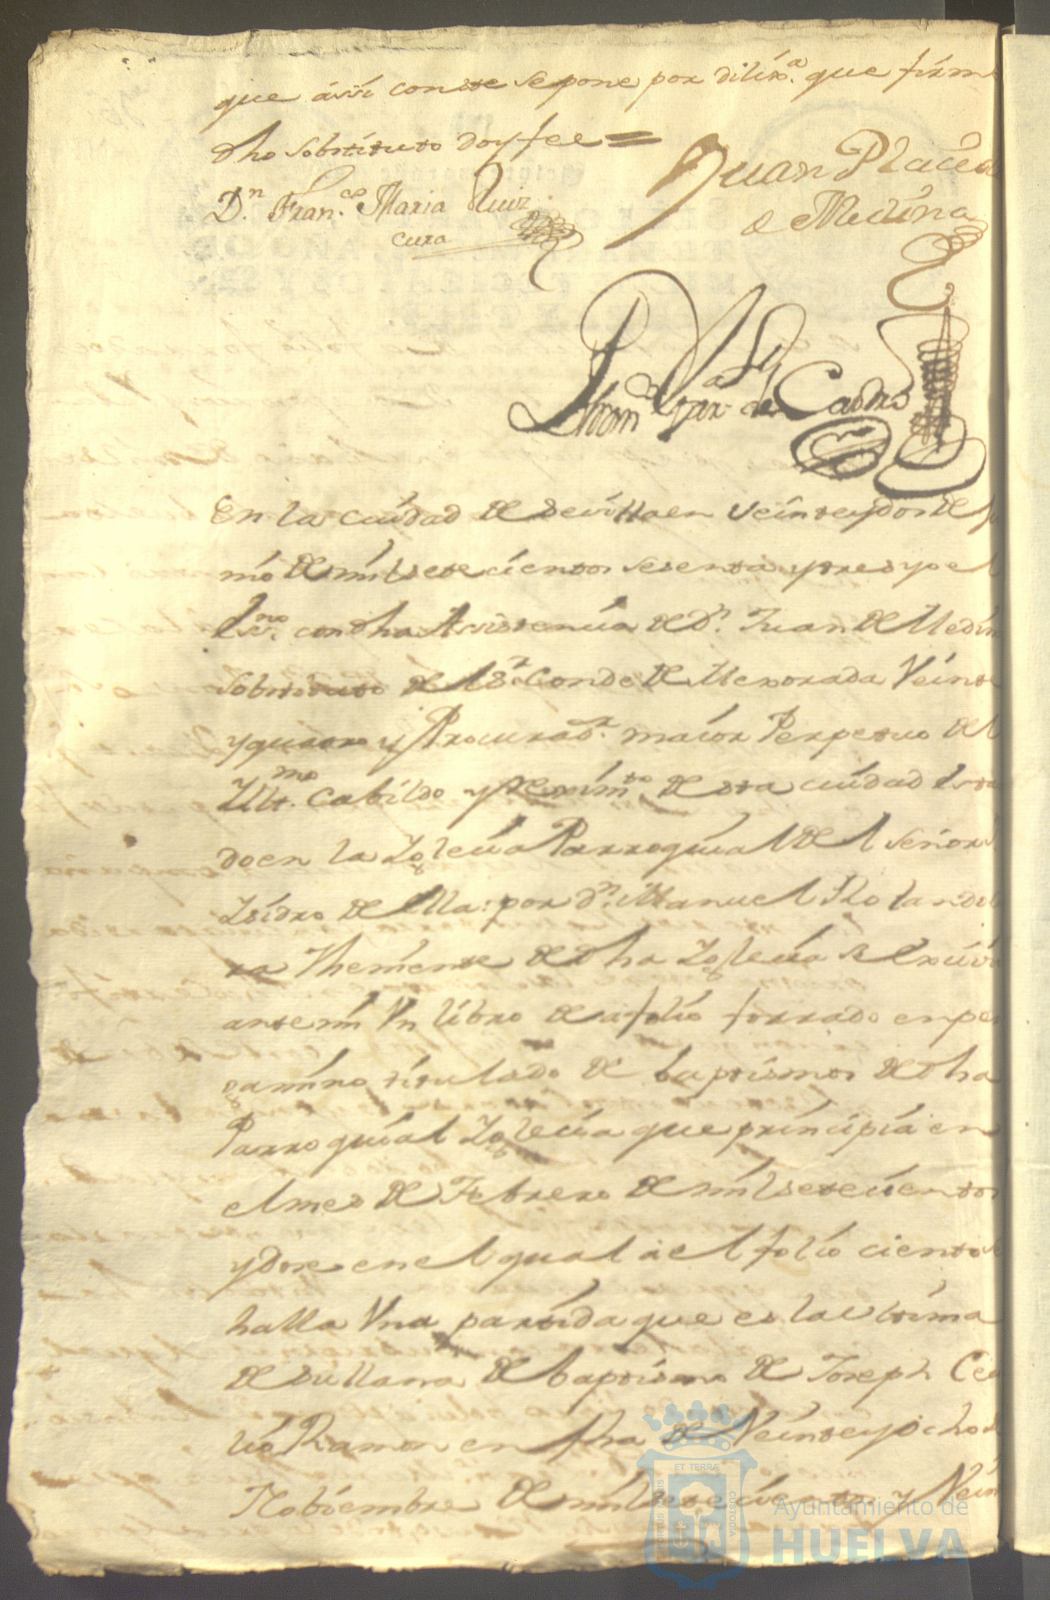 que assi conste se pone por dilixª que firm
dho sobstituto doy fee =
Dn Franco Maria Ruiz
cura
Juan Placido
de Medina
Franco
de Castro
En la ciudad de Sevilla en veinte y dos de Ju
nio de mil setecientos sesenta y tres yo el
Essno con dha Assistencia de Dn Juan de Medin
Sobstituto del Sr Conde de Mexorada Veinte
y quatro y Procuradr. maior Perpetuo del
Illtmo Cabildo y Reximto de esta ciudad esta
do en la Iglecia Parroquial del señor S.
Isidro de ella: por dn Manuel
Theniente de dha Iglecia se exivio
ante mi Vn libro de a folio forrado en per
gamino titulado de baptismos de dha
Parroquial Iglecia que principia en
el mes de Febrero de mil setecientos
y doze en el qual a el folio ciento
halla Vna partida que es la vltima
de su llana de baptismo de Joseph Ce
lio Ramon en fha de Veinte y ocho d
Nobiembre de mil setecientos y Vein
ET TERRA
CUSTODIA
Ayuntamiento de
HUELVA